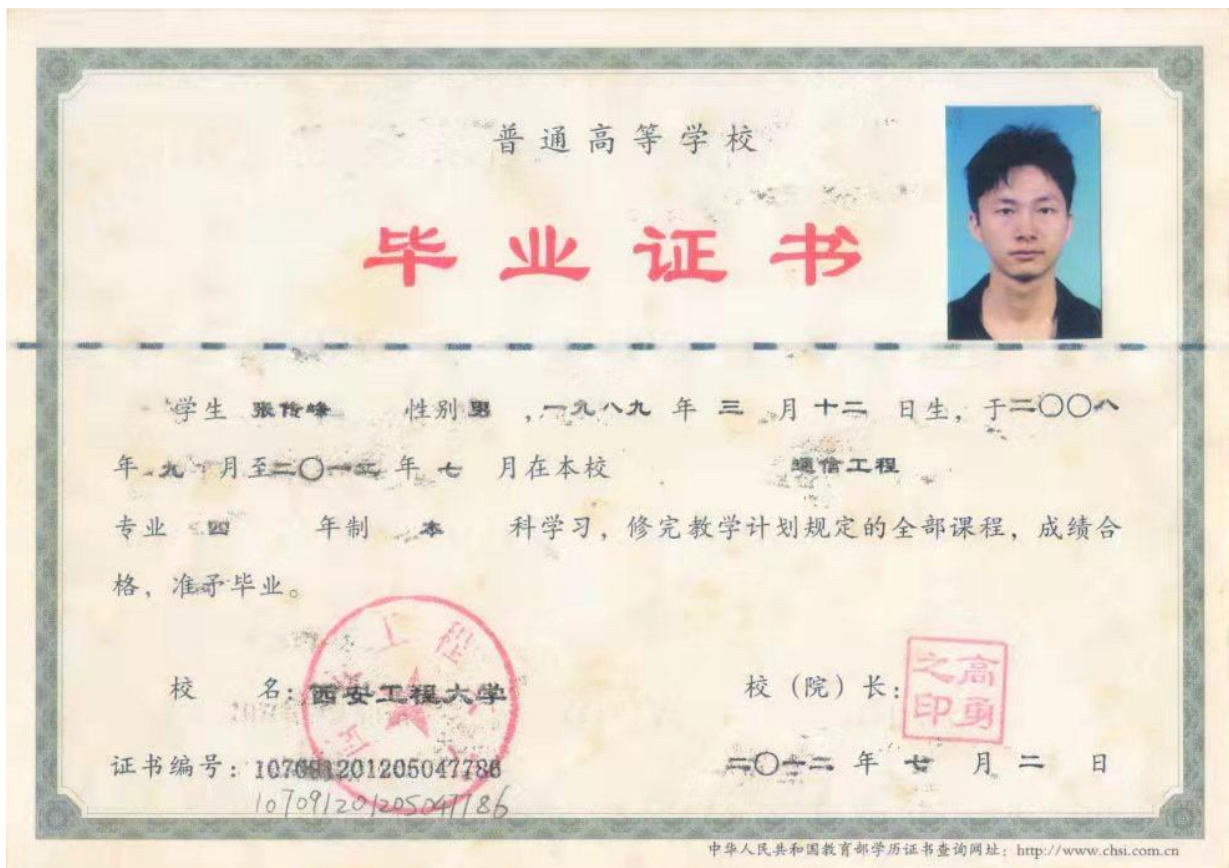 普通高等学校
毕业证书
学生 张传峰 性别 男 ，一九八九 年 三 月 十二 日生，于二〇〇八
年 九 月至二〇一二 年 七 月在本校 通信工程
专业 四 年制 本 科学习，修完教学计划规定的全部课程，成绩合
格，准予毕业。
校 名：西安工程大学
校（院）长：
高勇之印
证书编号：107091201205047786
二〇一二 年 七 月 二 日
107091201205047786
中华人民共和国教育部学历证书查询网址：http://www.chsi.com.cn